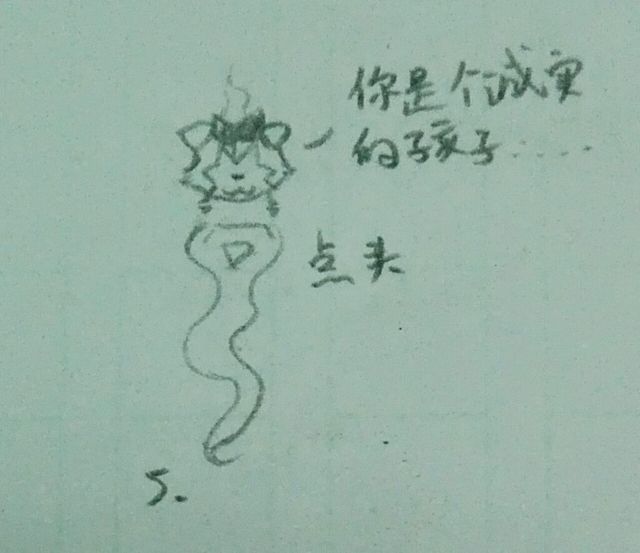 你是个诚实
的孩子……
点头
5.